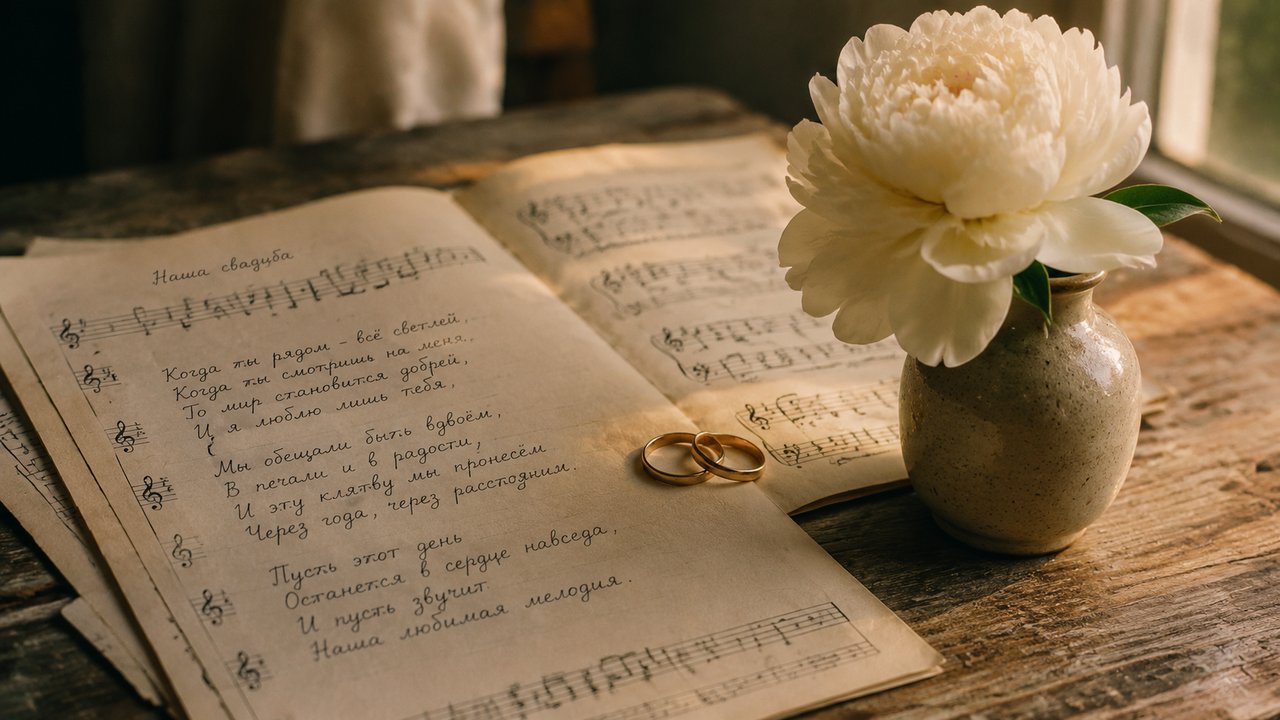 Наша свадьба
Когда ты рядом – всё светлей,
Когда ты смотришь на меня,
То мир становится добрей,
И я люблю лишь тебя,
Мы обещали быть вдвоём,
В печали и в радости,
И эту клятву мы пронесём
Через года, через расстояним.
Пусть этот день
Останется в сердце навседа,
И пусть звучит
Наша любимая мелодия.